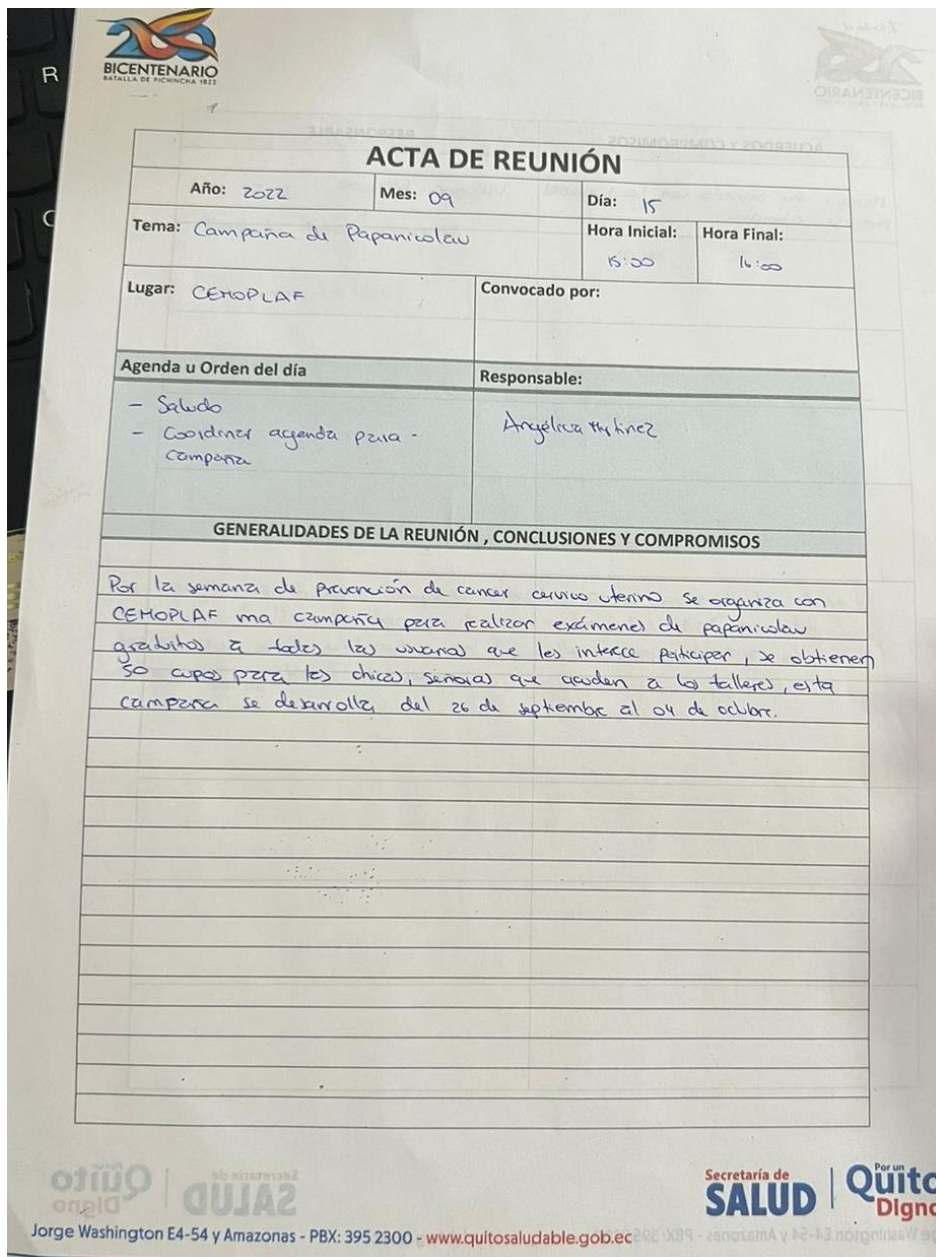 R
BICENTENARIO
BATALLA DE PICHINCHA 1822
ACTA DE REUNIÓN
Año: 2022 Mes: 09 Día: 15
Tema: Campaña de Papanicolau Hora Inicial: Hora Final:
15:00 16:00
Lugar: CEMOPLAF Convocado por:
Agenda u Orden del día Responsable:
- Saludo
- Coordinar agenda para - Angélica
campaña
GENERALIDADES DE LA REUNIÓN , CONCLUSIONES Y COMPROMISOS
Por la semana de prevención de cancer cervico uterino se organiza con
CEMOPLAF una campaña para realizar exámenes de papanicolau
gratuitos a todas las usuarias que les interece participar, se obtienen
50 cupos para las chicas, señoras que acuden a los talleres, esta
campaña se desarrolla del 26 de septiembre al 04 de octubre.
Secretaría de
SALUD
Por un
Quito
Digno
Jorge Washington E4-54 y Amazonas - PBX: 395 2300 - www.quitosaludable.gob.ec